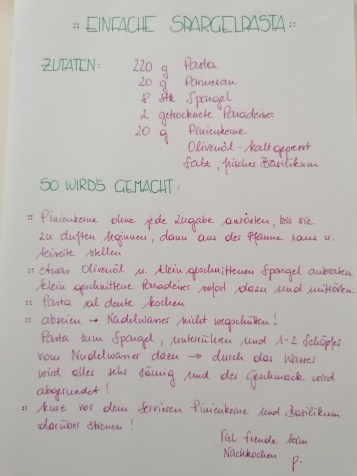 :: EINFACHE SPARGELPASTA ::
ZUTATEN: 220 g Pasta
20 g Parmesan
8 Stk Spargel
2 getrocknete Paradeiser
20 g Pinienkerne
Olivenöl - kaltgepresst
Salz, frisches Basilikum
SO WIRD'S GEMACHT:
:: Pinienkerne ohne jede Zugabe anrösten, bis sie
zu duften beginnen, dann aus der Pfanne raus u.
beiseite stellen
:: etwas Olivenöl u. klein geschnittenen Spargel anbraten
klein geschnittene Paradeiser sofort dazu und mitrösten
:: Pasta al dente kochen
:: abseien → Nudelwasser nicht wegschütten!
Pasta zum Spargel, unterrühren und 1-2 Schöpfer
vom Nudelwasser dazu → durch das Wasser
wird alles sehr sämig und der Geschmack wird
abgerundet!
:: kurz vor dem Servieren Pinienkerne und Basilikum
darüber streuen!
Viel Freude beim
Nachkochen
P.